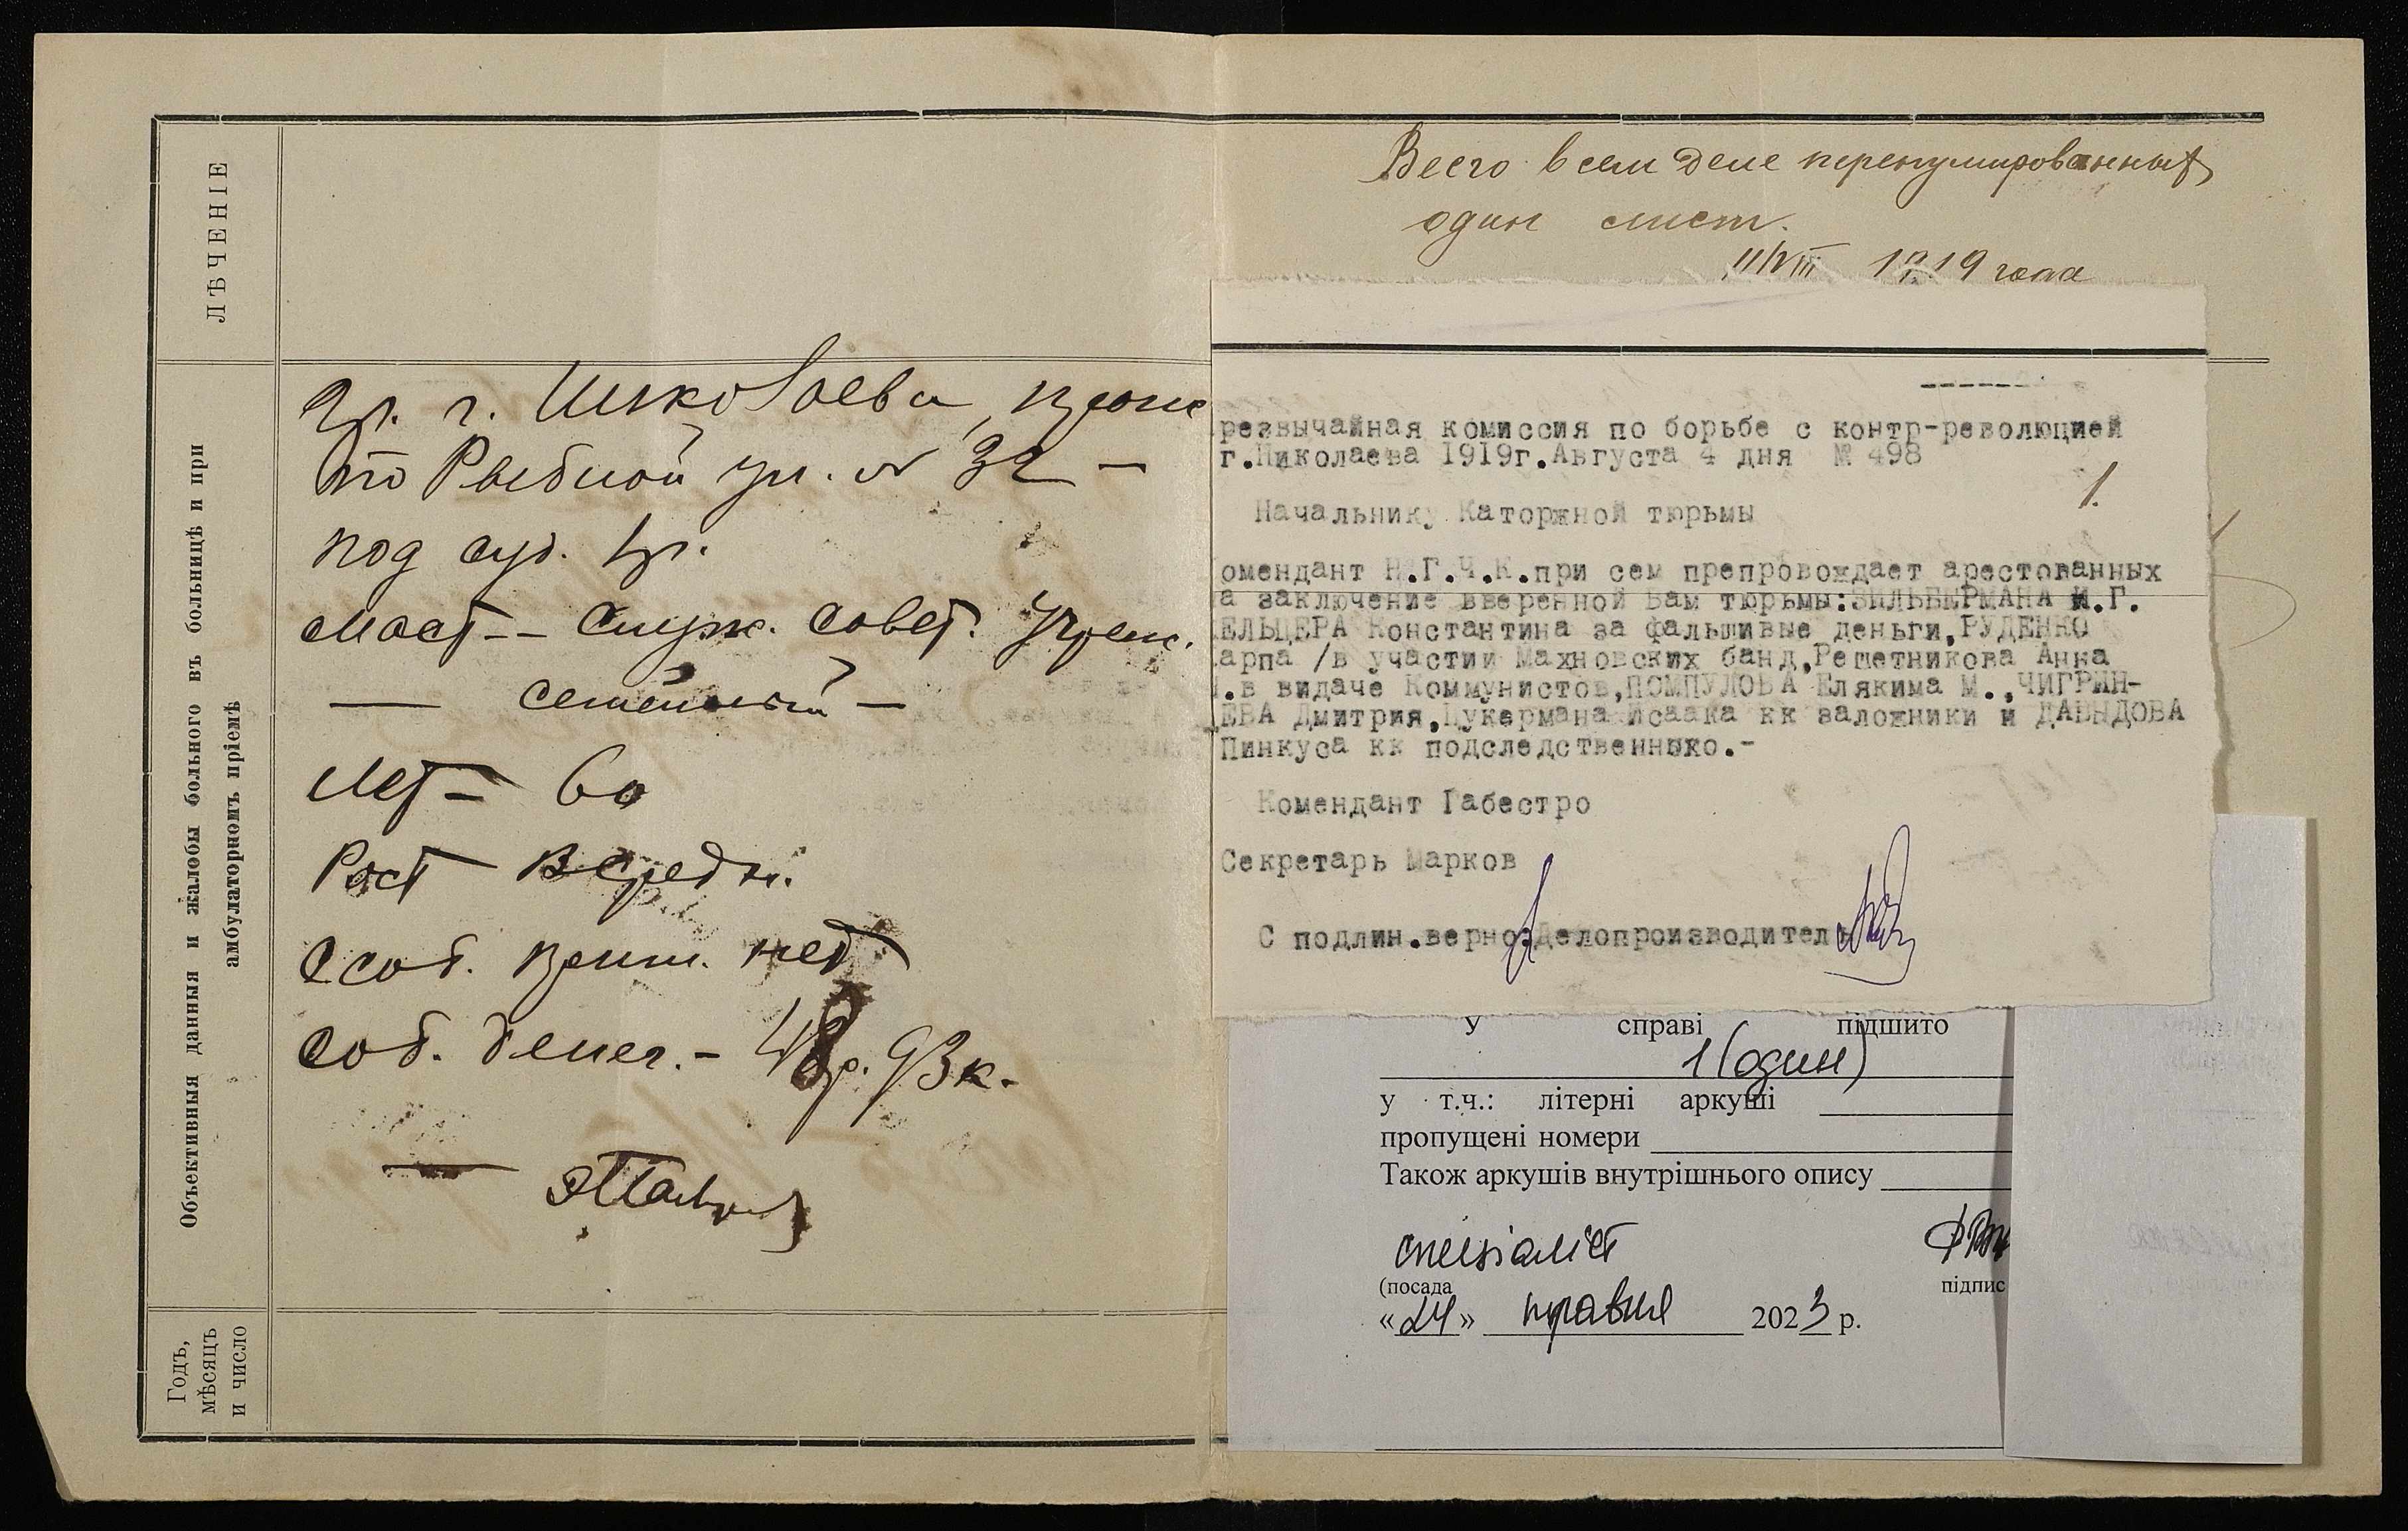 ЛѢЧЕНІЕ
Объективныя данныя и жалобы больного въ больницѣ и при
амбулаторномъ пріемѣ
Годъ,
мѣсяцъ
и число
г. Николаева
по Рыбной ул. № 32 —
под суд.
служ. совет.
— семейный —
Лет — 60
Рост — в средн.
Особ. прим. нет
Соб. денег. — р. 93 к.
Всего в сем деле перенумированных
один лист.
11/VIII 1919 года
резвычайная комиссия по борьбе с контр-революцией
г.Николаева 1919г.Августа 4 дня № 498
1.
Начальнику Каторжной тюрьмы
омендант Н.Г.Ч.К.при сем препровождает арестованных
а заключение вверенной Вам тюрьмы:ЗИЛЬБЕРМАНА И.Г.
ЕЛЬЦЕРА Константина за фальшивые деньги,РУДЕНКО
арпа /в участии Махновских банд,Решетникова Анна
.в видаче Коммунистов,ПОМПУЛОВА Елякима М.,ЧИГРИН-
ЕВА Дмитрия,Цукермана Исаака кк заложники и ДАВЫДОВА
Пинкуса кк подследственныко.-
Комендант Габестро
Секретарь Марков
С подлин.верно:Делопроизводитель
У справі підшито
1 (один)
у т.ч.: літерні аркуші
пропущені номери
Також аркушів внутрішнього опису
спеціаліст
(посада підпис
«24» травня 2023 р.